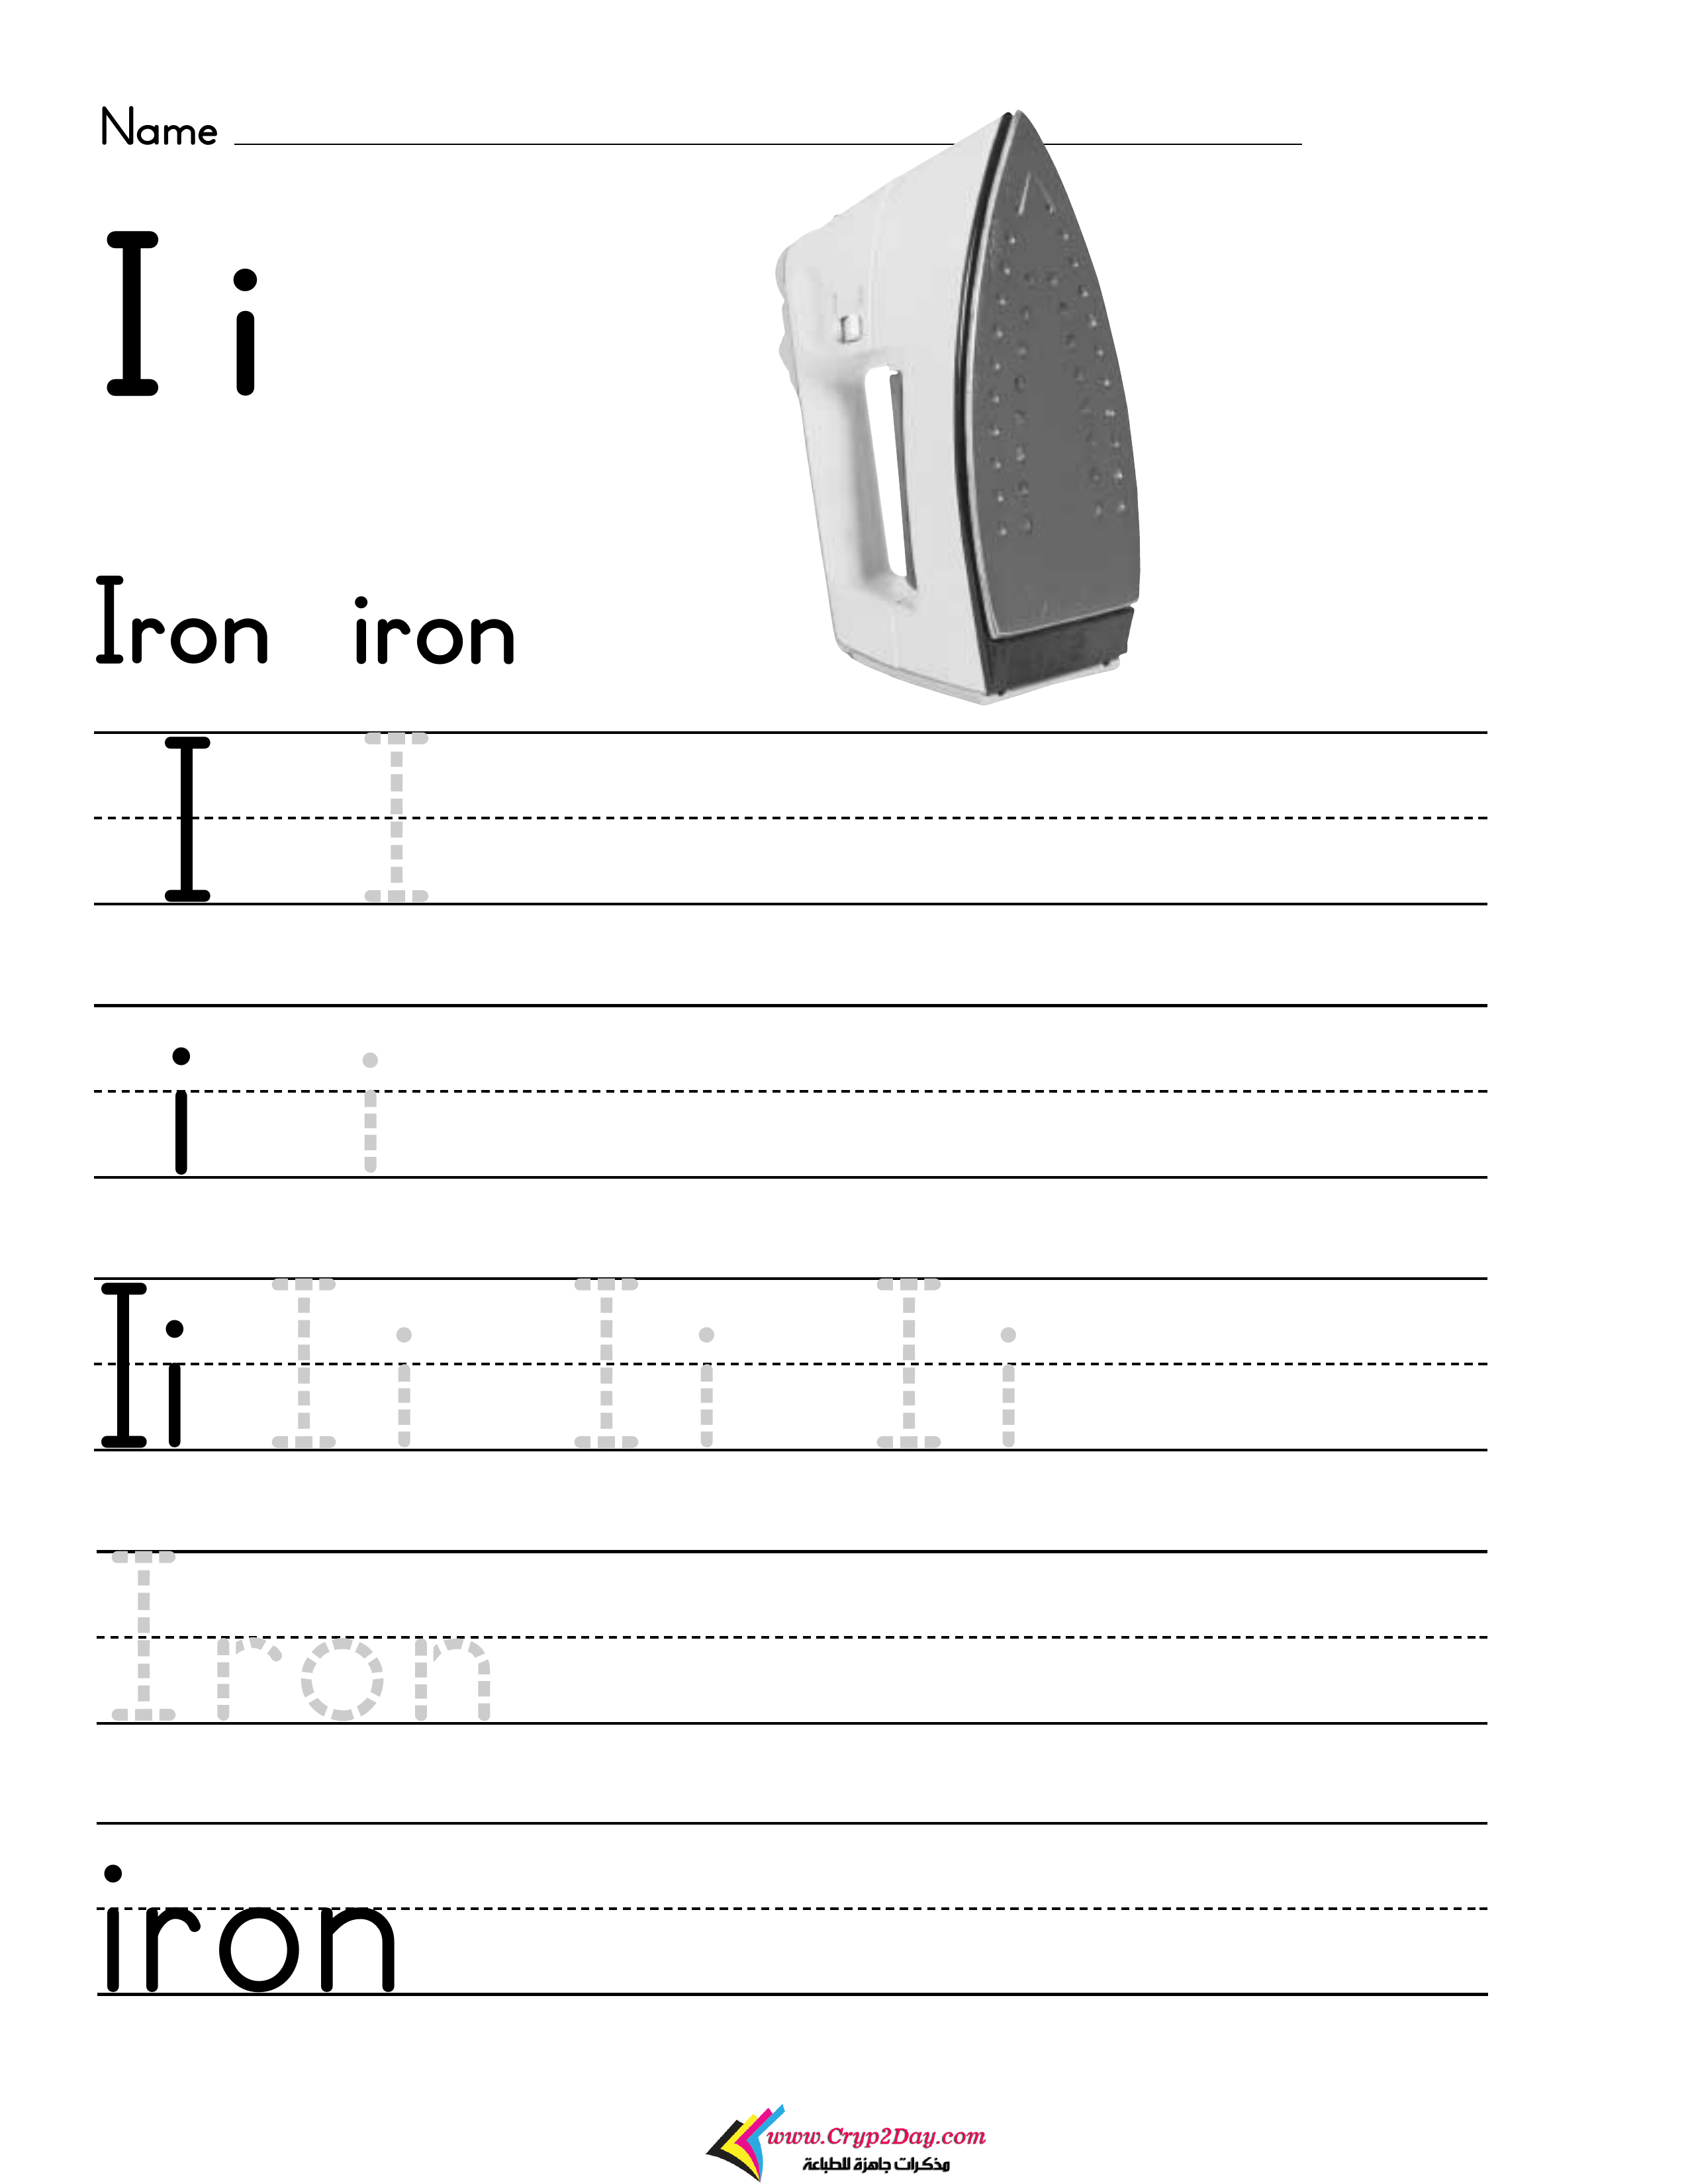 Name
I i
Iron iron
I I
i i
Ii I i I i I i
Iron
iron
www.Cryp2Day.com
مذكرات جاهزة للطباعة